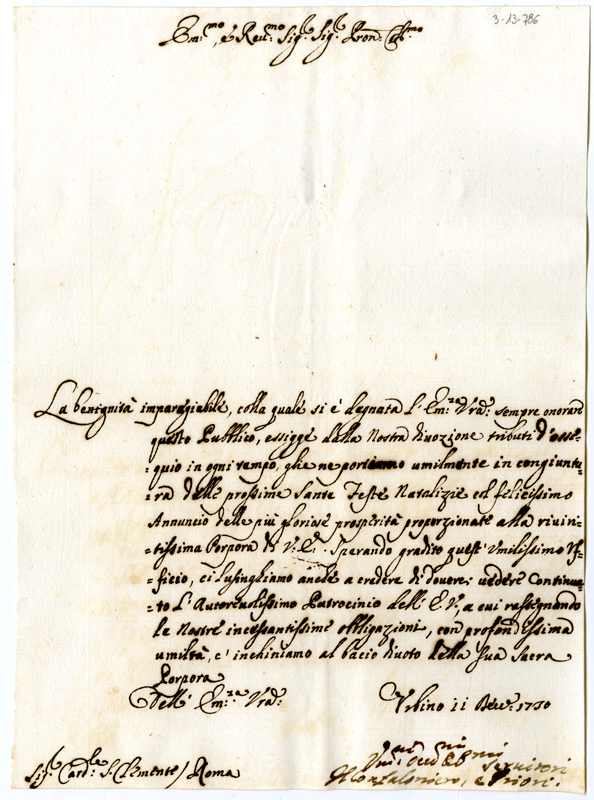 3-13-786
Em:mo, e Reu:mo Sig:r Sig:r Pron: Col:mo
La benignità impareggiabile, colla quale si è degnata l'Em:za Vra: sempre onorare
questo Pubblico, essigge dalla Nostra diuozione tributi d'osse-
=quio in ogni tempo, gliene portiamo umilmente in congiuntu-
=ra delle prossime Sante Feste Natalizie col felicissimo
Annuncio delle più gloriose prosperità proporzionate alla riuiri-
=tissima Porpora di V. E. Sperando gradito quest'Vmilissimo Vf-
=ficio, ci lusinghiamo anche a credere di douere uedere Continua-
=to l'Autoreuolissimo Patrocinio dell'E. V., a cui rassegnando
le Nostre incessantissime obbligazioni, con profondissima
umiltà, c'inchiniamo al bacio diuoto della Sua Sacra
Porpora
Dell'Em:za Vra:
Vrbino 11 Dec:
Vmi Seruitori
Sig:r Card:le S. Clemente / Roma
Il Confaloniero, e Priori.